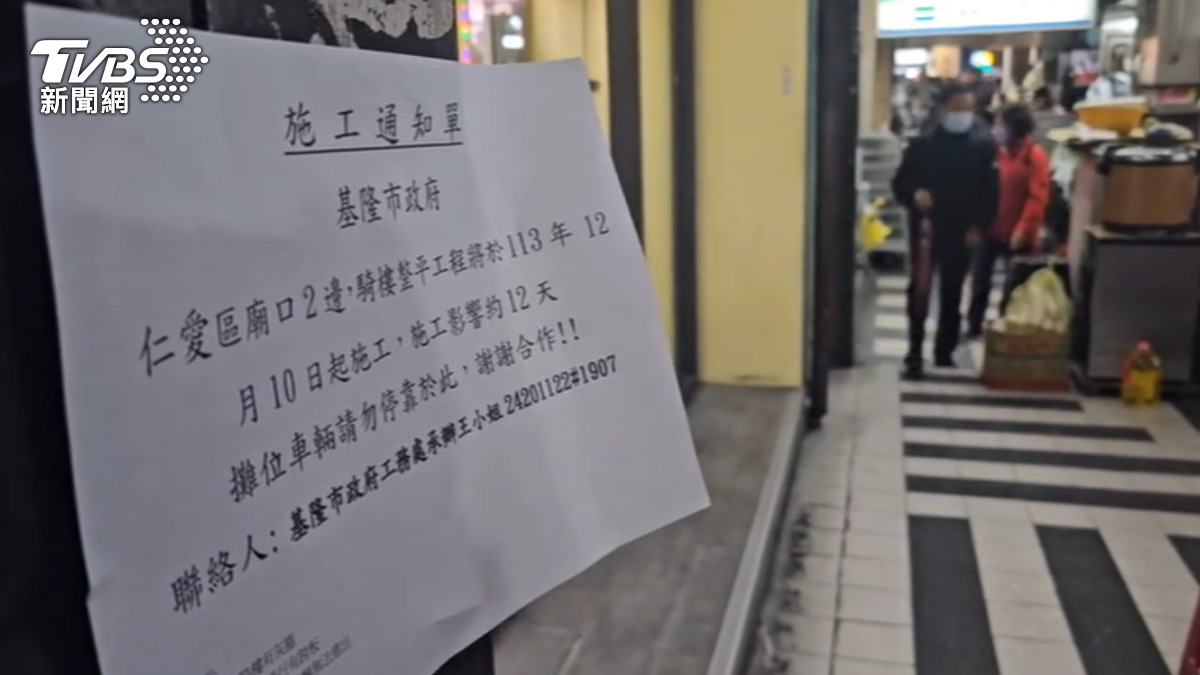 TVBS
新聞網
施工通知單
基隆市政府
仁愛區廟口2邊,騎樓整平工程將於113年12
月10日起施工,施工影響約12天
攤位車輛請勿停靠於此,謝謝合作!!
聯絡人:基隆市政府工務處承辦王小姐24201122#1907